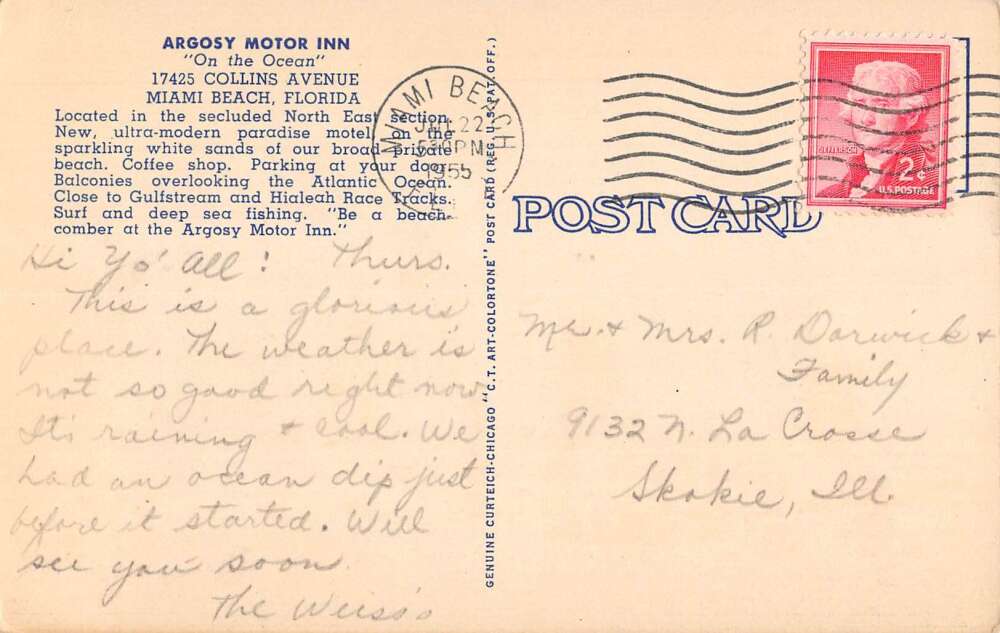 ARGOSY MOTOR INN
"On the Ocean"
17425 COLLINS AVENUE
MIAMI BEACH, FLORIDA
Located in the secluded North East section.
New, ultra-modern paradise motel on the
sparkling white sands of our broad private
beach. Coffee shop. Parking at your door.
Balconies overlooking the Atlantic Ocean.
Close to Gulfstream and Hialeah Race Tracks.
Surf and deep sea fishing. "Be a beach-
comber at the Argosy Motor Inn."
Hi Yo' All! Thurs.
This is a glorious
place. The weather is
not so good right now
It's raining & cool. We
had an ocean dip just
before it started. Will
see you soon.
The Weiss's
GENUINE CURTEICH-CHICAGO "C. T. ART-COLORTONE" POST CARD (REG. U. S. PAT. OFF.)
MIAMI BEACH
22
5 PM
1955
JEFFERSON
2¢
U.S. POSTAGE
POST CARD
Mr. & Mrs. R. Darwick &
Family
9132 N. La Crosse
Skokie, Ill.